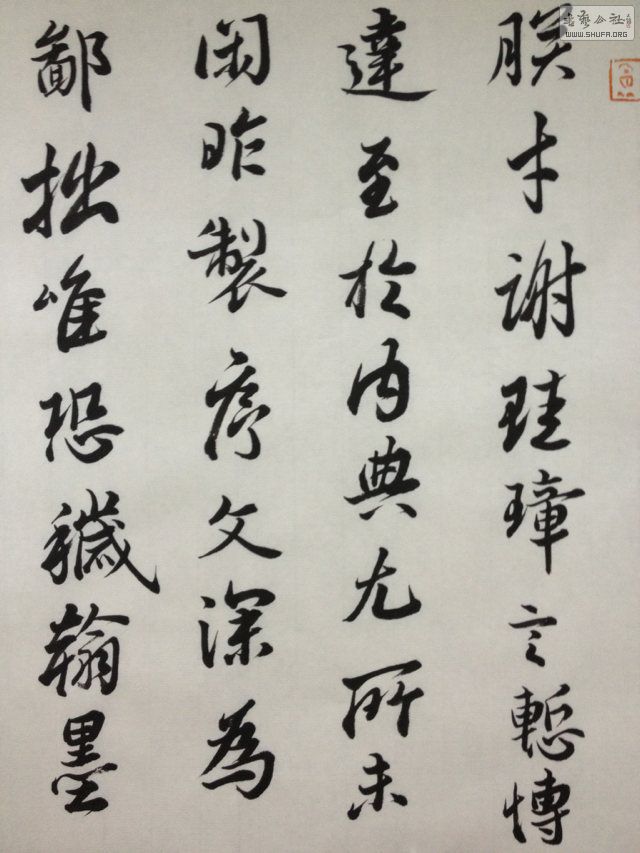 朕才謝珪璋言慙博
達至於內典尤所未
閑昨製序文深為
鄙拙唯恐穢翰墨
書藝公社
WWW.SHUFA.ORG